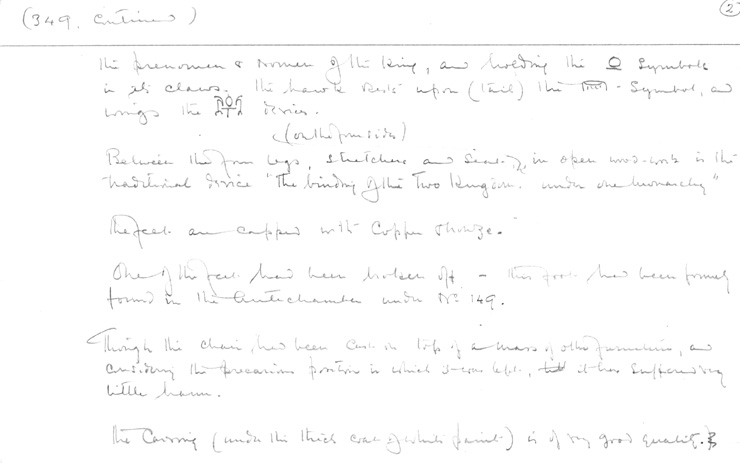 (349. Continued)
2
the prenomen & nomen of the king, and holding the Symbols
in its claws. The hawk rests upon (tail) the - Symbol, and
wings the device.
(on the four sides)
Between the four legs, stretchers and seat, in open wood-work is the
traditional device "The binding of the Two Kingdoms under one monarchy"
The feet are capped with Copper or bronze.
One of the feet had been broken off - this foot had been formerly
found in the Antechamber under No. 149.
Though this chair had been cast on top of a mass of other furniture, and
considering the precarious position in which it was left, it has suffered very
little harm.
The Carving (under the thick coat of white paint) is of very good quality.